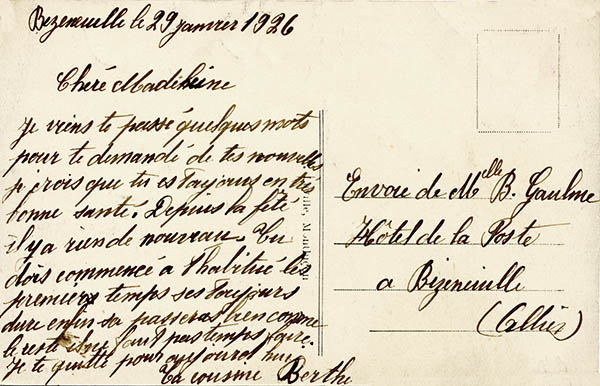 Bezeneuille le 29 janvier 1926
Cheré Madeleine
Je viens te passé quelques mots
pour te demandé de tes nouvelles
je crois que tu es toujours en très
bonne santé. Depuis la fété
il y a rien de nouveau. Tu
dois commencé a thabitué les
premiers temps ses toujours
dure enfin sa passeras bien comme
le reste faut pas temps faire.
Je te quitte pour aujourd hui
Ta cousine Berthe
Envoie de Melle B. Gaulme
Hôtel de la Poste
a Bizeneuille
(Allier)